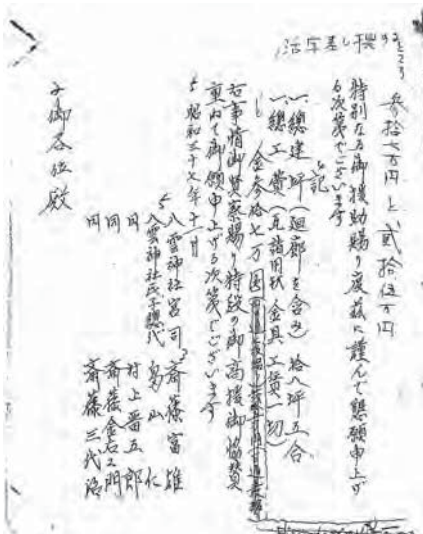 活字差し換するところ
参拾七万円と、貮拾伍万円
特別なる御援助賜り度茲に謹んで懇願申上げ
る次第でございます
記
一、總建坪(廻廊を含み)拾八坪五合
一、總工費(瓦諸用材金具工賃一切)
金参拾七万円
右事情御賢察賜り特段の御高援御協賛
重ねて御願申上げる次第でございます
昭和三十七年十一月
八雲神社宮司 斎藤富雄
八雲神社氏子總代 島山仁
同 村上晋五郎
同 斎藤金右ヱ門
同 斎藤三代治
御各位殿